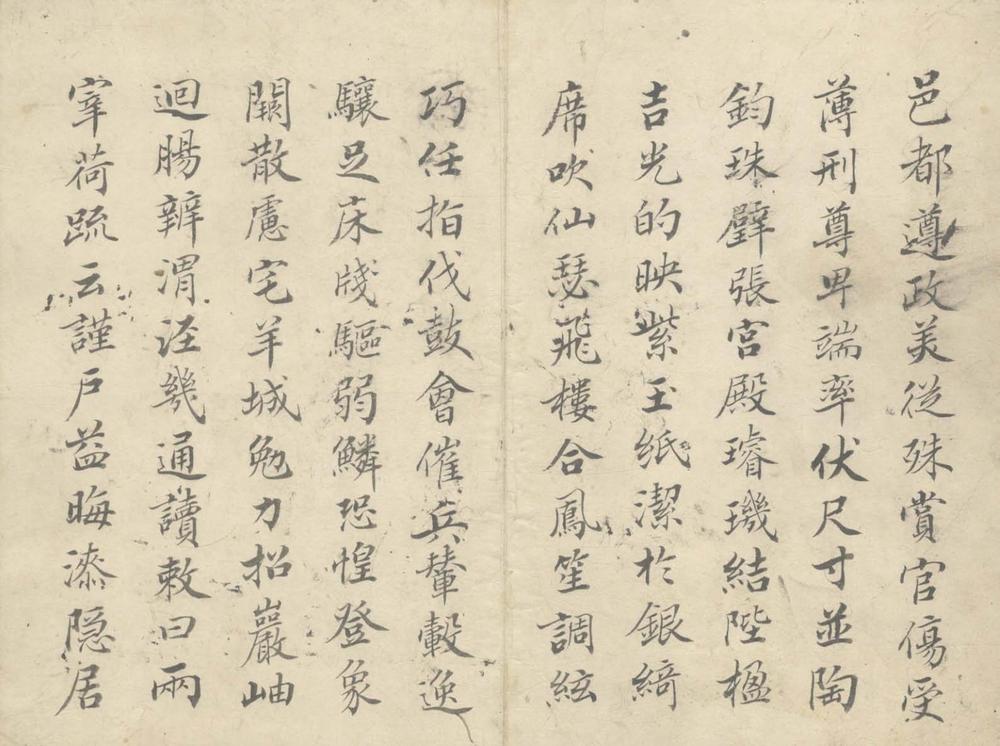 邑都遵政美從殊賞官傷受
薄刑尊卑端率伏尺寸並陶
鈞珠璧張宮殿璿璣結陛楹
吉光的映紫玉紙潔於銀綺
席吹仙瑟飛樓合鳳笙調絃
巧任指伐鼓會催兵輦轂逸
驤足床牋驅弱鱗恐惶登象
闕散慮宅羊城勉力招巖岫
迴腸辨渭涇幾通讀敕曰兩
宰荷疏云謹戶益晦漆隱居